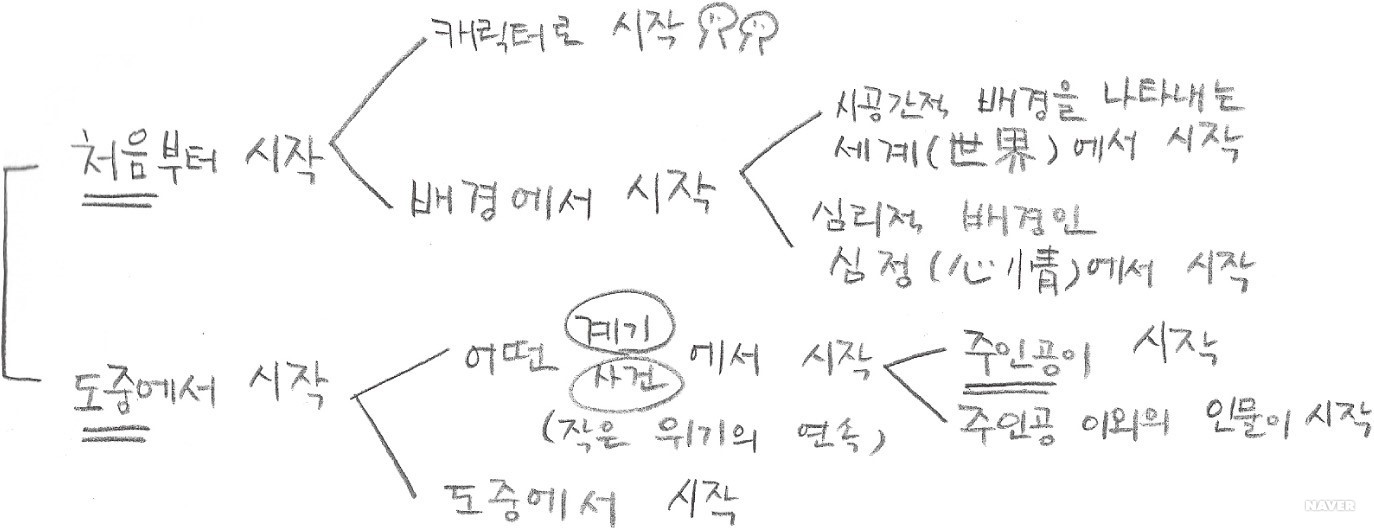 캐릭터로 시작
처음부터 시작
배경에서 시작
시공간적 배경을 나타내는
세계(世界)에서 시작
심리적 배경인
심정(心情)에서 시작
도중에서 시작
어떤 계기 에서 시작
사건
(작은 위기의 연속)
주인공이 시작
주인공 이외의 인물이 시작
도중에서 시작
NAVER